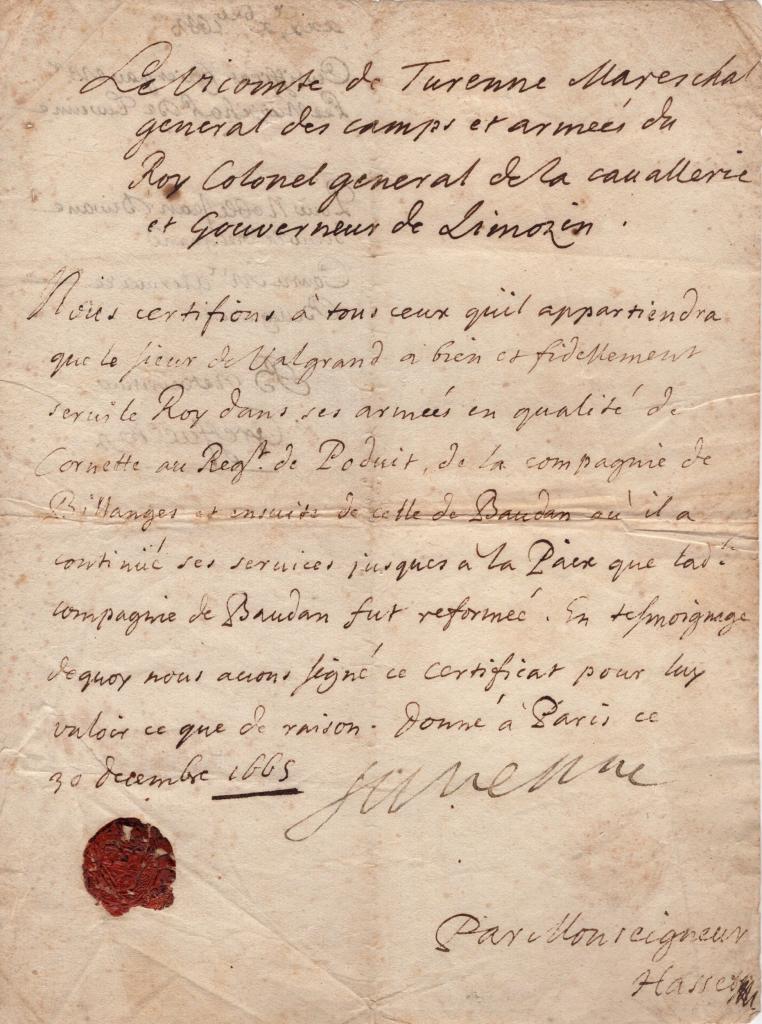 Le Vicomte de Turenne Mareschal
general des camps et armeés du
Roy Colonel general de la cauallerie
et Gouuerneur de Limozin .
Nous certifions à tous ceux quil appartiendra
que le sieur de Valgrand a bien et fidellement
serui le Roy dans ses armeés en qualité de
Cornette au Regt. de Poduit, de la compagnie de
Billanges et ensuite de celle de Baudan où il a
continüé ses seruices jusques a la Paix que lad.e
compagnie de Baudan fut reformeé. En tesmoignage
dequoy nous auons signé ce certificat pour luy
valoir ce que de raison. Donné à Paris ce
30 decembre 1665
Turenne
Par Monseigneur